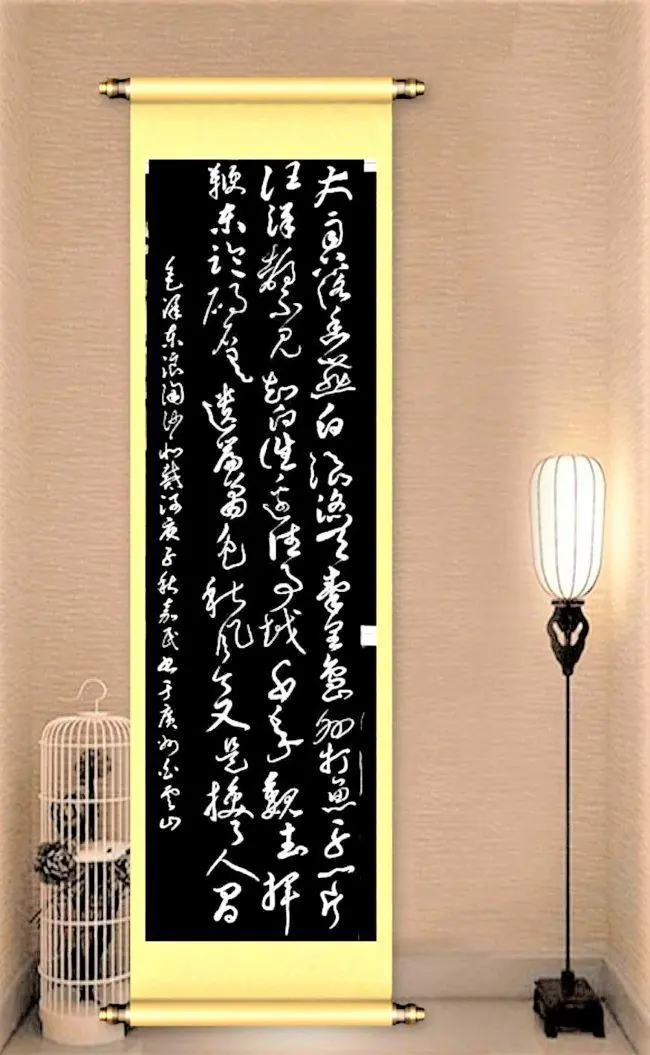 大雨落幽燕白浪滔天秦皇岛外打魚船一片
汪洋都不见知向谁边往事越千年魏武挥
鞭东临碣石有遗篇萧瑟秋风今又是换了人间
毛泽东浪淘沙北戴河庚子秋嘉民书于廣州白云山